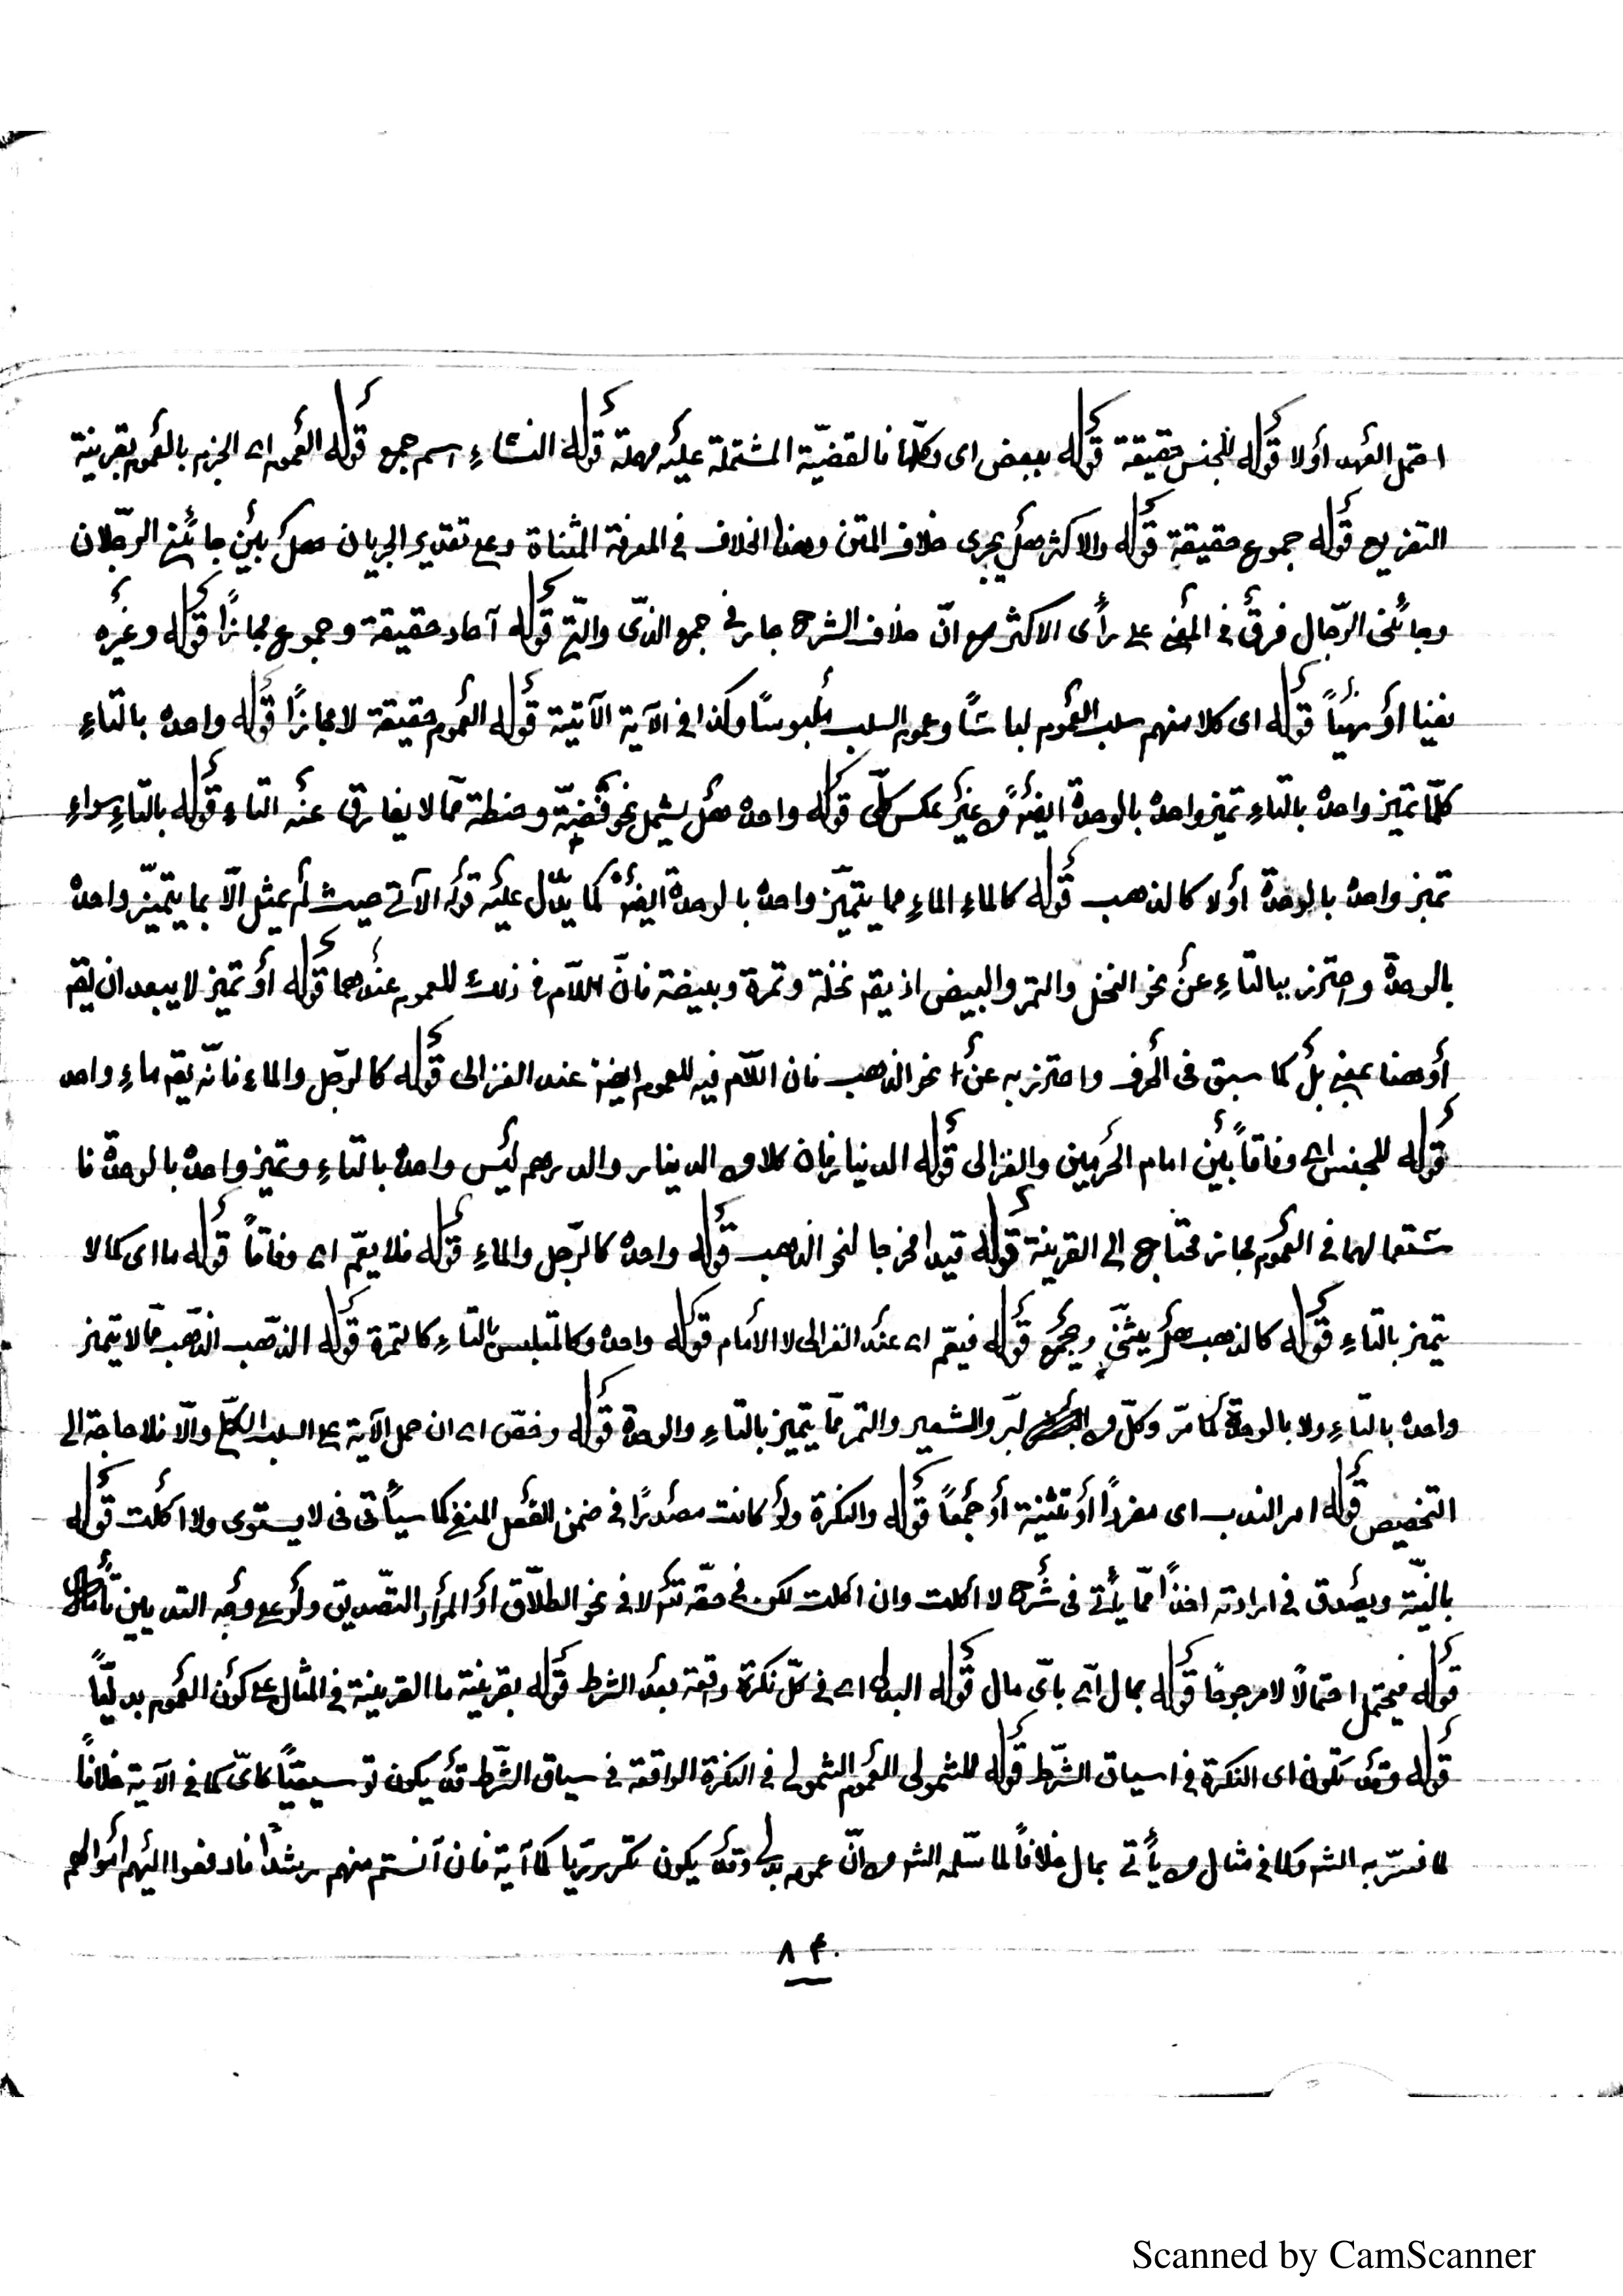 احتمل العهد أو لا قوله للجنس حقيقة قوله ببعض اى وكلما فالقضيّة المشتملة عليه مهملة قوله النساء اسم جمع قوله العموم اى الجزم بالعموم بقرينة
التفريع قوله جموع حقيقة قوله والاكثر هل يجرى خلاف المتن وهذا الخلاف في المعرفة المثناة وعلى تقدير الجريان هل بين جائنى الرّجلان
وجائنى الرّجال فرق في المعنى على رأى الاكثر مع انّ خلاف الشرح جار في جمع الذّى والتى قوله آحاد حقيقة وجموع مجازًا قوله وغيره
نفيا أو نهيًا قوله اى كلا منهم سلب العموم لباسًا وعموم السلب ملبوسًا وكذا في الآية الآتية قوله العموم حقيقة لا مجازًا قوله واحده بالتاءِ
كلّما تميّز واحده بالتاءِ تميز واحده بالوحدة ايضًا من غير عكس كلّى قوله واحده هل يشمل نحو قضيّة وحنطة ممّا لا يفارق عنه التاء قوله بالتاءِ سواءِ
تميز واحده بالوحدة أو لا كالذهب قوله كالماءِ الماءِ مما يتميّز واحده بالوحدة ايضًا كما يدّل عليه قوله الآتى حيث لم يمثل الّا بما يتميّز واحده
بالوحدة واحترز بالتاءِ عن نحو النخل والتمر والبيض اذ يقم نخلة وتمرة وبيضة فانّ اللّام في ذلك للعموم عندهما قوله أو تميز لا يبعد ان يقم
أو هنا بمعنى بل كما سبق فى الحرف واحترز به عن نحو الذهب فان اللّام فيه للعموم ايضًا عند الغزالى قوله كالرّجل والماء فانّه يقم ماءِ واحد
قوله للجنس اى وفاقاً بين امام الحرمين والغزالى قوله الدنيا فان كلا من الدينار والدرهم ليس واحده بالتاءِ وتميز واحده بالوحدة فا
ستعمالهما في العموم مجاز محتاج الى القرينة قوله قيدا مخرجا لنحو الذهب قوله واحده كالرّجل والماءِ قوله فلا يعّم اى وفاقاً قوله ما اى كما لا
يتميز بالتاءِ قوله كالذهب هل يثنّى ويجمع قوله فيعّم اى عند الغزالى لا الأمام قوله واحده وكالمتلبس بالتاءِ كالتمرة قوله الذّهب الذّهب ممّا لا يتميز
واحده بالتاءِ ولا بالوحدة كما مرّ وكلّ من البرّ والشعير والتمر ممّا يتميز بالتاءِ والوحدة قوله وخصّ اى ان حمل الآية على السلب الكلّى والّا فلا حاجة الى
التخصيص قوله امر الندب اى مفردًا أو تثنية أو جمعًا قوله والنكرة ولو كانت مصدرًا في ضمن الفعل المنفى كما سيأتى فى لا يستوى ولا اكلت قوله
بالنيّة ويصدق في ارادته اخذًا ممّا يأتى فى شرح لا اكلت وان اكلت لكن في حقّه تكم لا في نحو الطلّاق أو المراد التصّديق ولو على وجه التديين
قوله فيحتمل احتمالًا لا مرجوحًا قوله بمال اى باىّ مال قوله البدلى اى في كلّ نكرة وقعة بعد الشرط قوله بقرينة ما القرينة في المثال على كون العموم بدليّاً
قوله وقد تكون اى النكرة في اسياق الشّرط قوله للشمولى العموم الشمولى في النكرة الواقعة في سياق الشّرط قد يكون توسيعيًّا كاىّ كما في الآية خلافاً
لما فسّر به الشر وكما في مثال من يأتى بمال خلافاً لما سلّمه الشر من انّ عموم بدلى وقد يكون تكريريّا كما آية فان آنستم منهم رشدًا فادفعوا اليهم أموالهم
٨٤٠
Scanned by CamScanner